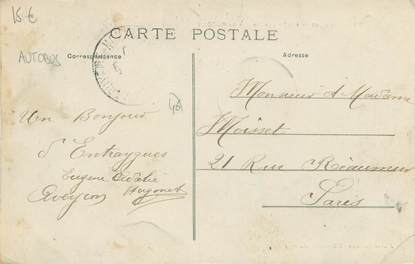 15 €
CARTE POSTALE
Correspondance
Adresse
AUTOBUS
Un Bonjour
d'Entraygues
Eugène
Aveyron Huguet
Monsieur et Madame
Moisset
21 Rue Réaumur
Paris